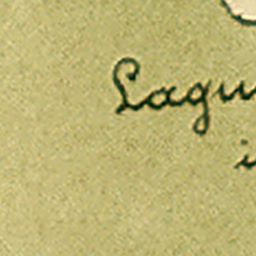 Lagu
i